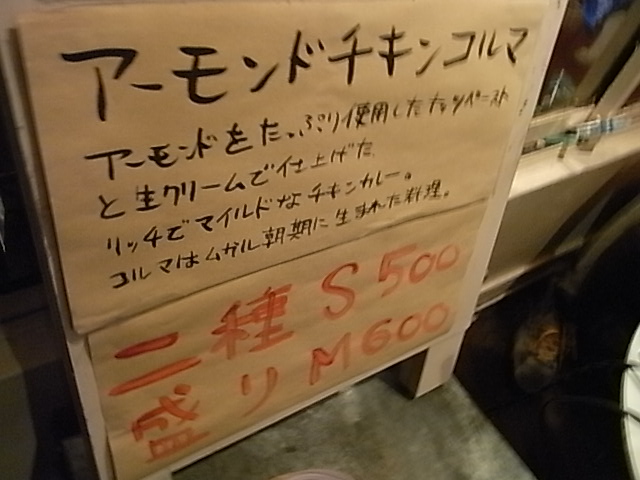 アーモンドチキンコルマ
アーモンドをたっぷり使用したナッツペースト
と生クリームで仕上げた
リッチでマイルドなチキンカレー。
コルマはムガル朝期に生まれた料理。
二種 S500
盛り M600